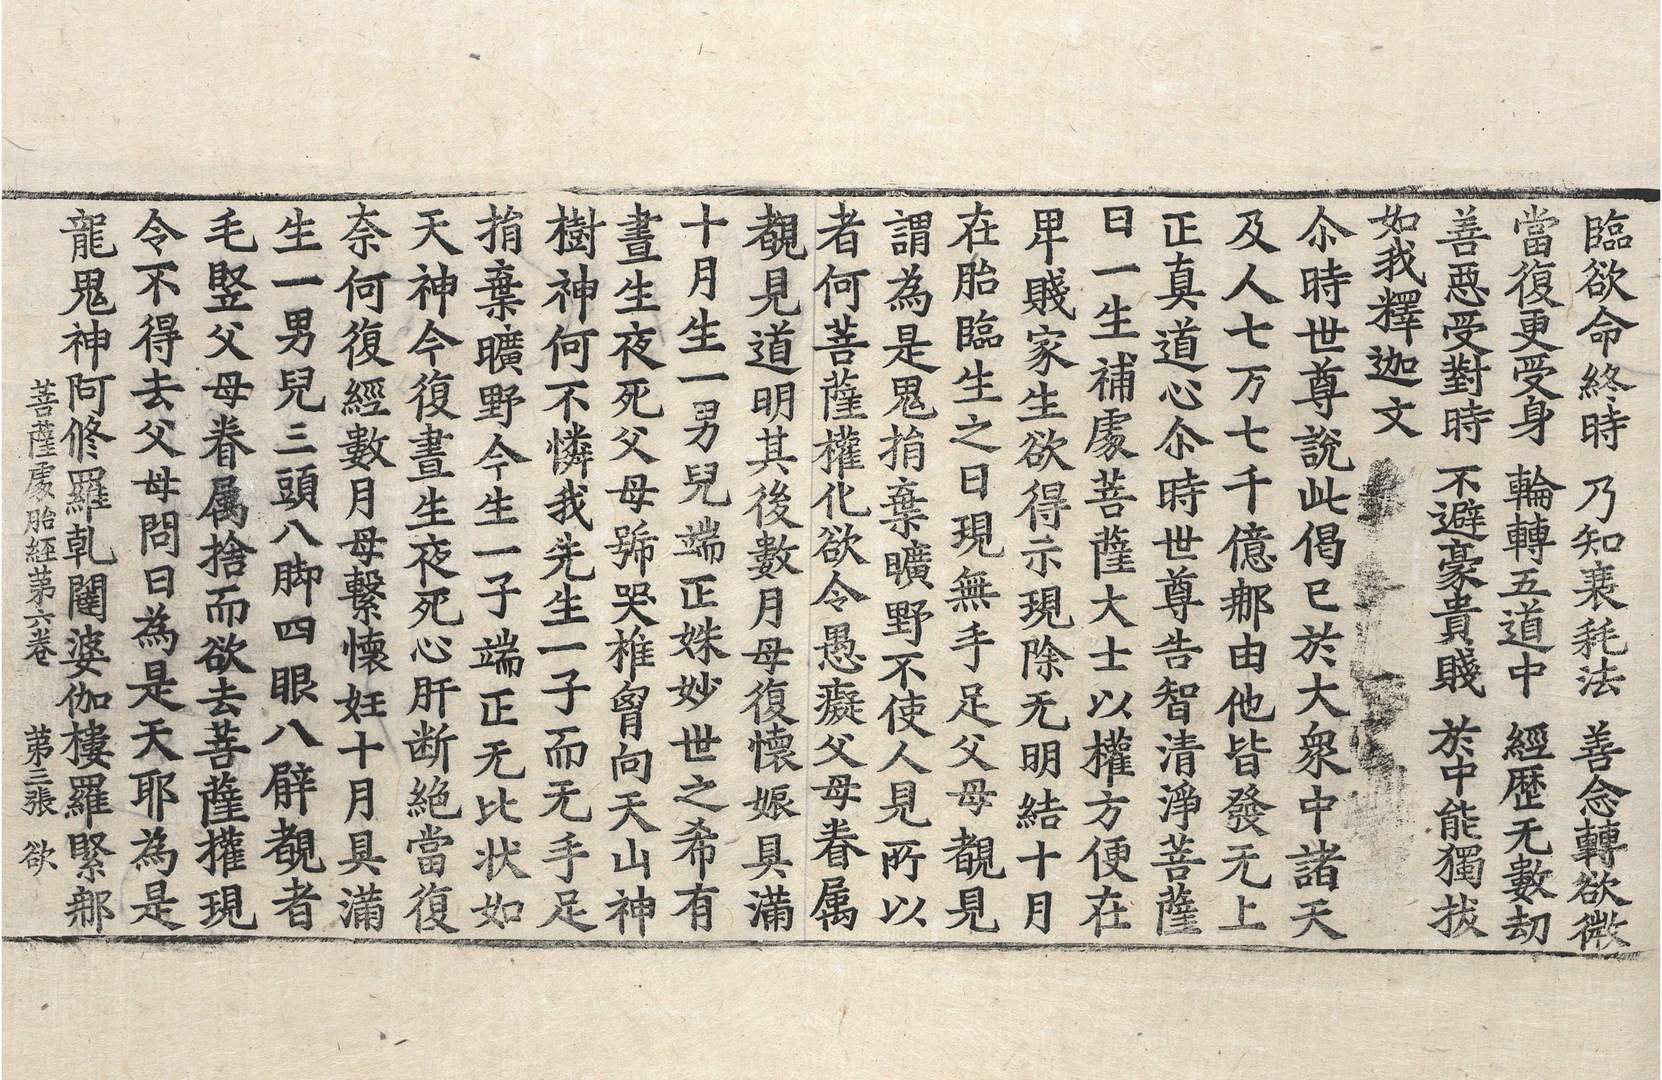 臨欲命終時 乃知衰耗法 善念轉欲微
當復更受身 輪轉五道中 經歷无數劫
善惡受對時 不避豪貴賤 於中能獨拔
如我釋迦文
尒時世尊說此偈已於大衆中諸天
及人七万七千億那由他皆發无上
正真道心尒時世尊告智清淨菩薩
曰一生補處菩薩大士以權方便在
卑賤家生欲得示現除无明結十月
在胎臨生之日現無手足父母覩見
謂為是鬼捐棄曠野不使人見所以
者何菩薩權化欲令愚癡父母眷属
覩見道明其後數月母復懷娠具滿
十月生一男兒端正姝妙世之希有
晝生夜死父母號哭椎胷向天山神
樹神何不憐我先生一子而无手足
捐棄曠野今生一子端正无比状如
天神今復晝生夜死心肝断絶當復
奈何復經數月母繫懷妊十月具滿
生一男兒三頭八脚四眼八臂覩者
毛竪父母眷属捨而欲去菩薩權現
令不得去父母問曰為是天耶為是
龍鬼神阿修羅乹闥婆伽樓羅緊那
菩薩處胎經第六卷 第三張 欲